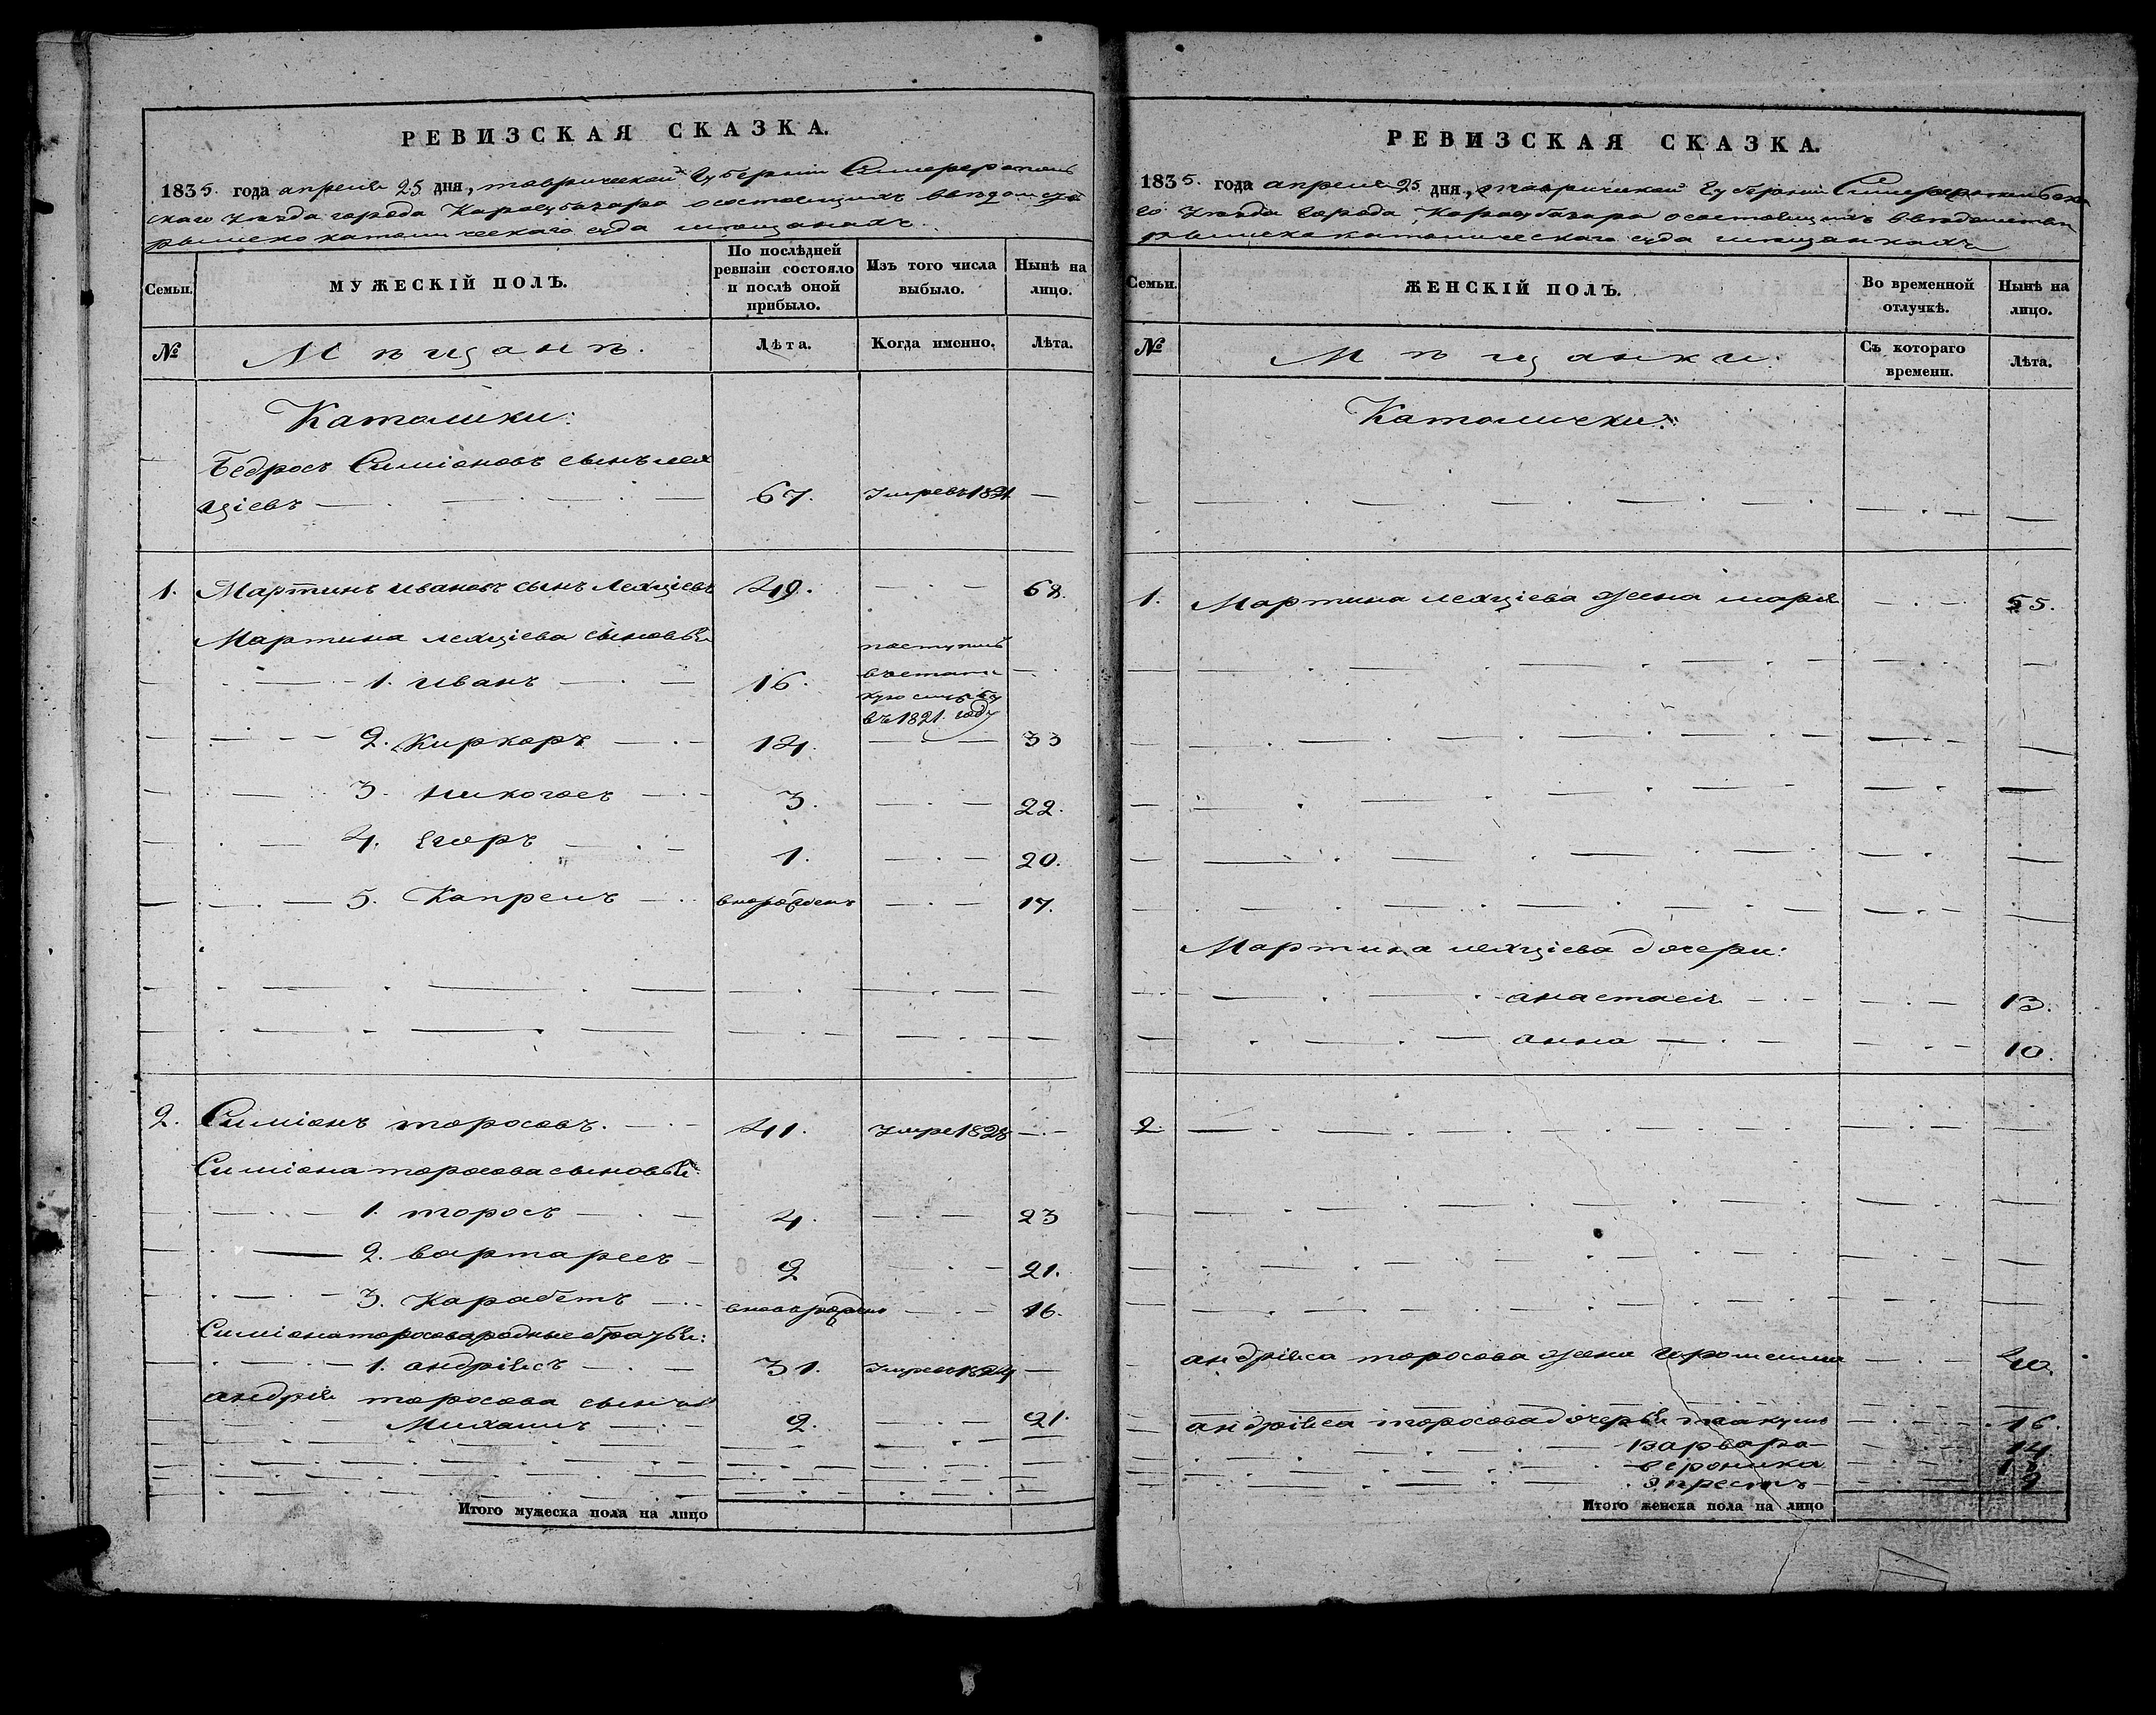 РЕВИЗСКАЯ СКАЗКА.
1835. года апреля 25 дня, таврической Губерніи Симферополь
скаго уезда города Карасубазара о состоящихъ
рымско католическаго суда мещанахъ.
Семьи. МУЖЕСКІЙ ПОЛЪ. По послѣдней ревизіи состояло и послѣ оной прибыло. Изъ того числа выбыло. Нынѣ на лицо.
№ Мѣщанѣ. Лѣта. Когда именно. Лѣта.
Католики:
Бедросъ Симіоновъ сынъ лех
ціевъ 67. Умре въ 1821
1. Мартинъ ивановъ сынъ Лехціевъ 49. 68.
Мартина лехціева сыновья
1. иванъ 16. поступилъ
въ статс
кую службу
въ 1821. году
2. Киркоръ 14. 33
3. Никогосъ 3. 22.
4. Егоръ 1. 20.
5. Капрелъ вно рожденъ 17.
2. Симіонъ торосовъ. 41. Умре 1828
Симіона торосова сыновья:
1. торосъ 4. 23
2. вартаресъ 2 21.
3. Карабетъ вново рожденъ 16.
Симіона торосова родные братья:
1. андріясъ 31. Умре 1824
андрія торосова сынъ
Михаилъ 2. 21.
Итого мужеска пола на лицо
РЕВИЗСКАЯ СКАЗКА.
1835. года апреля 25 дня, таврической Губерніи Симферопольска
го уезда города Карасубазара о состоящихъ в ведомстве
рымско католическаго суда мещанкахъ
Семьи. ЖЕНСКІЙ ПОЛЪ. Во временной отлучкѣ. Нынѣ на лицо.
№ Мѣщанки. Съ котораго времени. Лѣта.
Католички:
1. Мартина лехціева жена марія 55.
Мартина лехціева дочери:
анастасія 13.
анна 10.
2
андріяса торосова жена 40.
андріяса торосова дочерья такугъ 16.
Варвара 14
вероника
Эпресть 9
Итого женска пола на лицо